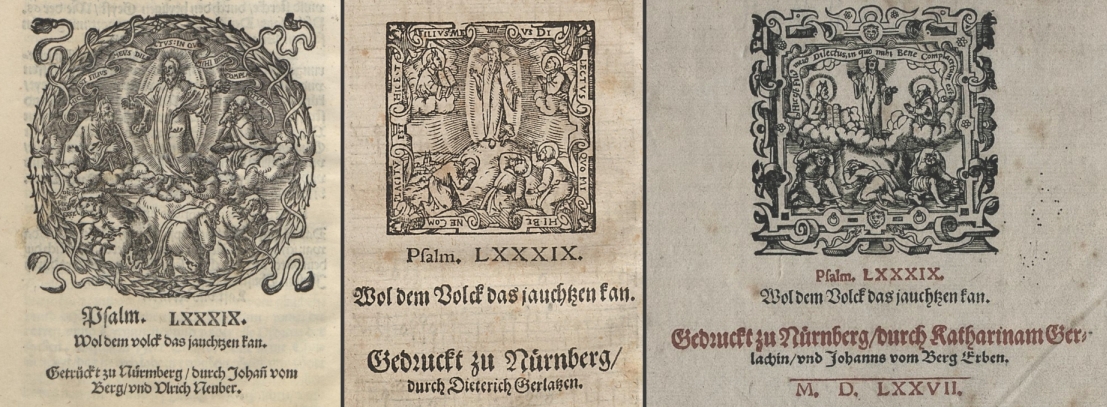 Psalm. LXXXIX.
Wol dem volck das jauchtzen kan.
Getrückt zu Nürmberg / durch Johañ vom
Berg / vnd Vlrich Neuber.
FILIVS ME VS DI
LECTVS
IN QVO MI
HI BE
NE COM
PLACITV
HIC EST
Psalm. LXXXIX.
Wol dem Volck das jauchtzen kan.
Gedruckt zu Nürnberg /
durch Dieterich Gerlatzen.
Hic est Filius meus Dilectus, in quo mihi Bene Complacitum
Psalm. LXXXIX.
Wol dem Volck das jauchtzen kan.
Gedruckt zu Nürnberg / durch Katharinam Ger-
lachin / vnd Johanns vom Berg Erben.
M. D. LXXVII.